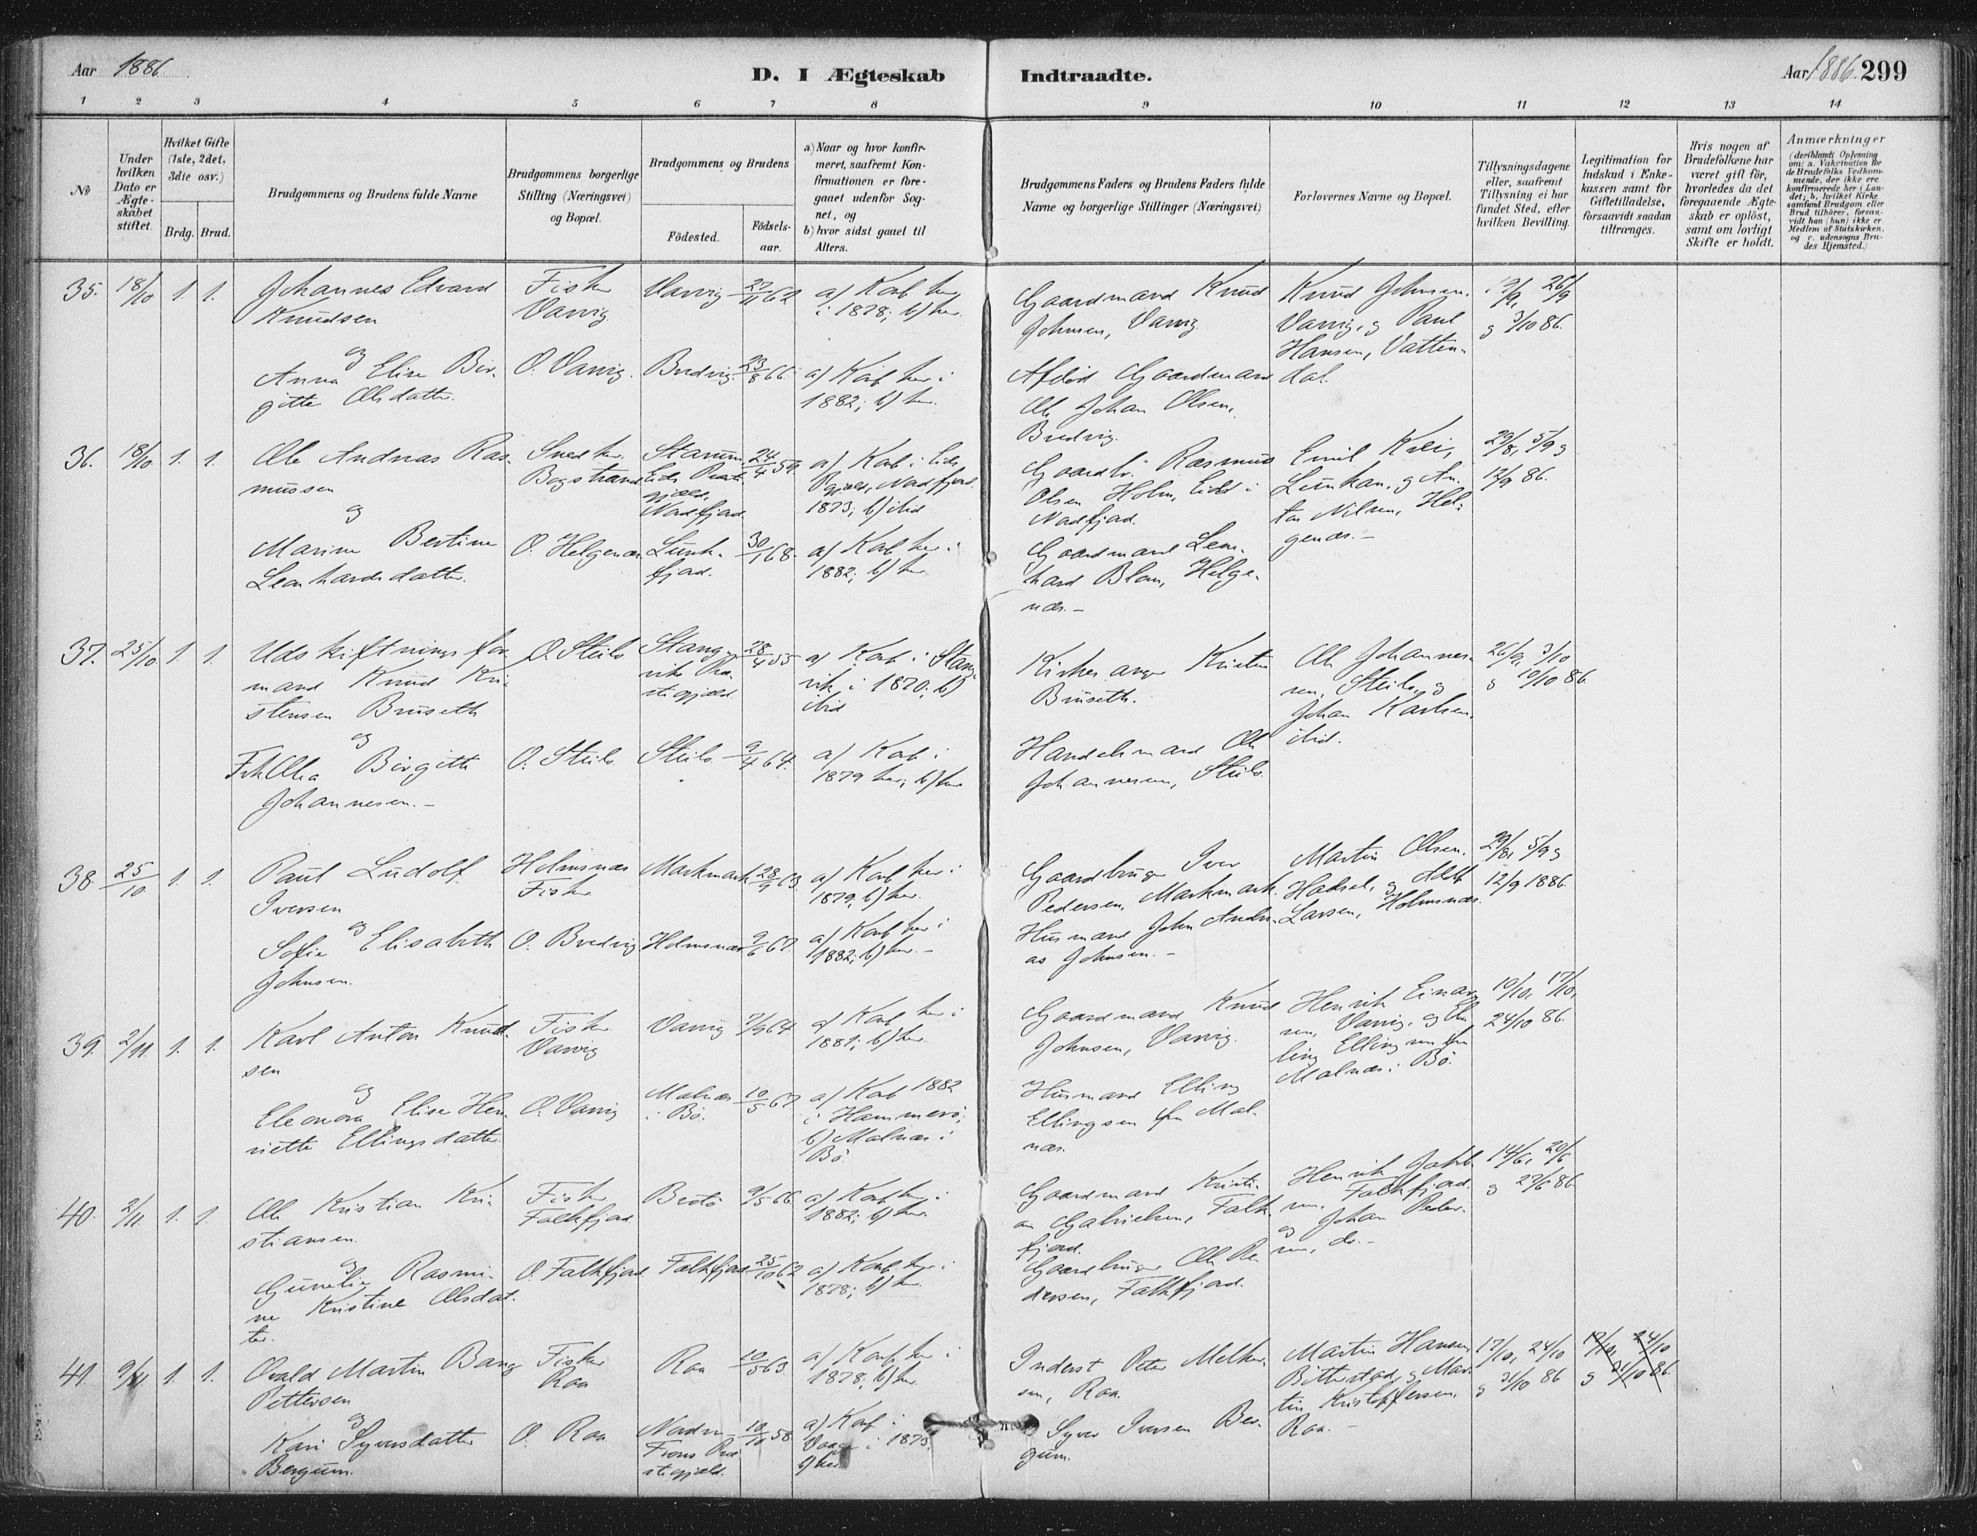 Aar 1886
D. I Ægteskab Indtraadte.
Aar 1886. 299
1 2 3 4 5 6 7 8 9 10 11 12 13 14
No
Under hvilken Dato er Ægteskabet stiftet.
Hvilket Gifte (1ste, 2det, 3die osv.)
Brdg. Brud.
Brudgommens og Brudens fulde Navne
Brudgommens borgerlige Stilling (Næringsvei) og Bopæl.
Brudgommens og Brudens
Fødested.
Fødselsaar.
a) Naar og hvor konfirmeret, saafremt Konfirmationen er foregaaet udenfor Sognet, og
b) hvor sidst gaaet til Alters.
Brudgommens Faders og Brudens Faders fulde Navne og borgerlige Stillinger (Næringsvei)
Forlovernes Navne og Bopæl.
Tillysningsdagene eller, saafremt Tillysning ei har fundet Sted, efter hvilken Bevilling.
Legitimation for Indskud i Enkekassen samt for Giftetilladelse, forsaavidt saadan tiltrænges.
Hvis nogen af Brudefolkene har været gift før, hvorledes da det foregaaende Ægteskab er opløst, samt om lovligt Skifte er holdt.
Anmærkninger
(deriblandt Oplysning om: a. Vakcination for de Brudefolks Vedkommende, der ikke ere konfirmerede her i Landet; b. hvilket Kirkesamfund Brudgom eller Brud tilhører, forsaavidt han (hun) ikke er Medlem af Statskirken, og c. udensogns Brudes Hjemsted.)
35. 18/10 1. 1. Johannes Edvard Knudsen
Fisker Varvig
Varvig 27/11 62
a) Konf. her i 1878; b) her.
Gaardmand Knud Johnsen, Varvig
Knud Johnsen, Varvig, og Paul Hansen, Vattendal.
19/9, 26/9 og 3/10 86.
og
Anna Elise Birgitte Olsdatter.
O. Varvig.
Bredvig 23/8 66
a) Konf. her i 1882; b) her.
Afdød Gaardmand Ole Johan Olsen, Bredvig.
36. 18/10 1. 1. Ole Andreas Rasmussen
Snedker Bogstrand
Eids Præstegjæld, Nordfjord
24/4 59.
a) Konf. i Eids Pgjæld, Nordfjord 1873; b) ibid
Rasmus Olsen Holm, Eids i Nordfjord.
Emil
og Anton Nilsen, Helgenæs.-
29/8, 5/9 og 12/9 86.
og
Marine Bertine Leonhardsdatter.
O. Helgenæs
30/1 68.
a) Konf. her i 1882; b) her.
Gaardmand Leonhard Helgenæs.-
37. 25/10 1. 1. Udskiftningsformand Knud Kristensen Bruseth
O. Steilo
Stangviks Præstegjæld
28/4 55
a) Konf. i Stangvik i 1870; b) ibid
Kirkesanger Kristen Bruseth.
Ole Johannesen, Steilo, og Johan Karlsen, ibid.
26/9, 3/10 og 10/10 86.
og
Olea Birgitte Johannesen.-
O. Steilo
Steilo
9/4 64.
a) Konf. i 1879 her; b) her
Handelsmand Ole Johannesen, Steilo
38. 25/10 1. 1. Paul Ludolf Iversen
Holmsnæs Fisker
Markmark 28/9 63.
a) Konf. her i 1879, b) her.
Gaardbruger Iver Pedersen, Markmark.
Martin Olsen, Hadsel, og Larsen, Holmsnæs.
29/8, 5/9 og 12/9 1886.
og
Sofie Elisabeth Johnsen.
O. Bredvig
Holmsnæs 9/6 67.
a) Konf. her i 1882; b) her.-
Husmand John Andreas Johnsen.-
39. 2/11. 1. 1. Karl Anton Knudsen
Fisker Varvig
Varvig 7/9 64
a) Konf. her i 1881; b) her.
Gaardmand Knud Johnsen, Varvig.
Henrik Einarsen, Varvig, og Elling Ellingsen fra Malnæs i Bø.
10/10, 17/10, 24/10 86.
og
Eleonora Elise Henriette Ellingsdatter
O. Varvig
Malnæs i Bø.
10/5 67
a) Konf 1882 i Hammerø; b) Malnæs i Bø
Husmand Elling Ellingsen fra Malnæs.
40. 2/11. 1. 1. Ole Kristian Kristiansen.
Fisker Falkfjord
9/5 66
a) Konf. her i 1882; b) her.
Gaardmand Kristian Gabrielsen, Falkfjord.
Henrik Falkfjord. og Johan Pedersen, do.-
14/6, 20/6 og 27/6 86
og
Rasmine Kristine Olsdatter.
O. Falkfjord
Falkfjord 25/10 62
a) Konf. her i 1878; b) her.
Gaardbruger Ole Pedersen, Falkfjord.
41. 9/11. 1. 1. Osvald Martin Bang Pettersen
Fisker Raa
Raa
10/5 63.
a) Konf. her i 1878; b) her.
Inderst Peter Melkersen, Raa.
Martin Hansen, Bitterstad, og Martin Kristoffersen, Raa.-
17/10, 24/10 og 31/10 86
17/10, 24/10 og 31/10 86.
og
Kari Syversdatter Bergum.
O. Raa
Nordre Frons Præstegjæld.
10/10 58
a) Konf. i Vaage i 1873, b) her
Syver Iversen Bergum.